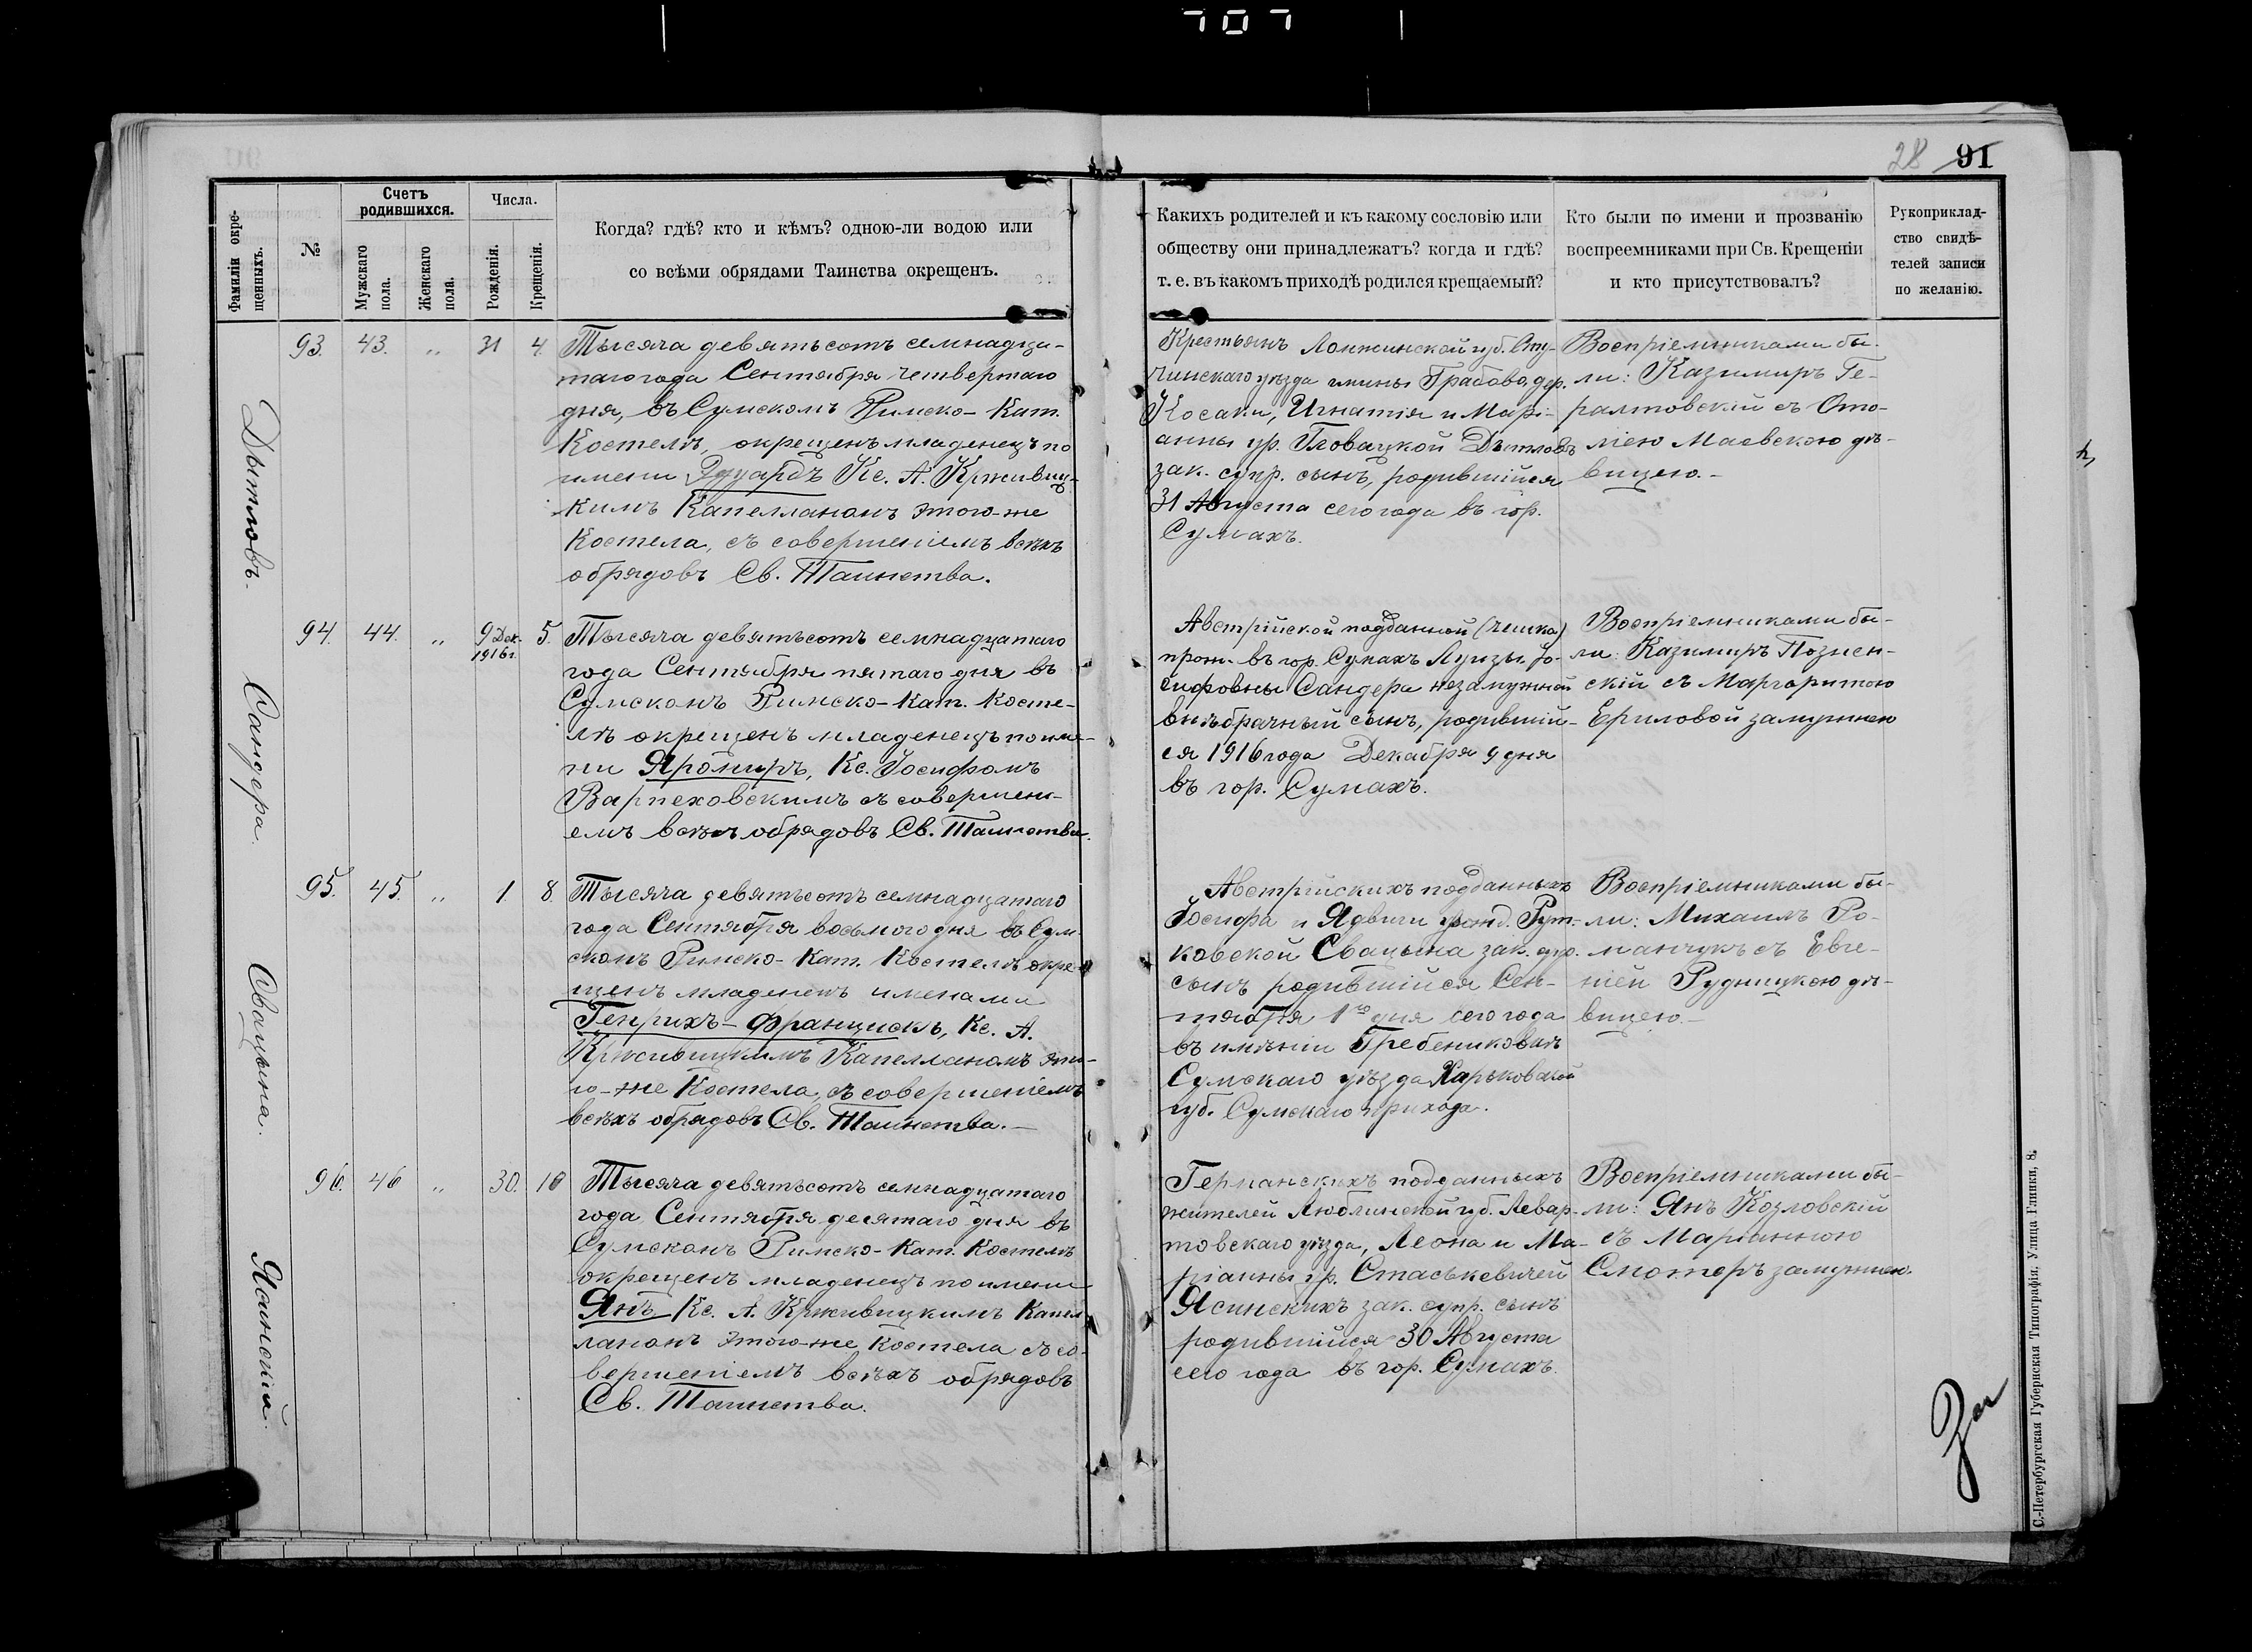 707
28 91
Фамиліи окре-
щенныхъ.
№
Счетъ
родившихся.
Мужскаго
пола.
Женскаго
пола.
Числа.
Рожденія.
Крещенія.
Когда? гдѣ? кто и кѣмъ? одною-ли водою или
со всѣми обрядами Таинства окрещенъ.
Какихъ родителей и къ какому сословію или
обществу они принадлежатъ? когда и гдѣ?
т. е. въ какомъ приходѣ родился крещаемый?
Кто были по имени и прозванію
воспреемниками при Св. Крещеніи
и кто присутствовалъ?
Рукоприклад-
ство свидѣ-
телей записи
по желанію.
Дѣтловъ.
93. 43. „ 31 4.
Тысяча девятьсотъ семнадца-
таго года Сентября четвертаго
дня, въ Сумскомъ Римско-Кат.
Костелѣ, окрещенъ младенецъ по
имени Эдуардъ Кс. А. Крживиц-
кимъ Капелланомъ этого-же
Костела, съ совершеніемъ всѣхъ
обрядовъ Св. Таинства.
Крестьянъ Ломжинской губ.
чинскаго уѣзда гмины Грабово, дер.
Косаки, Игнатія и Марі-
анны ур. Гловацкой Дѣтловъ
зак. супр. сынъ, родившійся
31 Августа сего года въ гор.
Сумахъ.
Воспріемниками бы-
ли: Казимиръ Ге-
ралтовскій съ Ото-
ліею Маевскою дѣ-
вицею.-
Сандера.
94. 44. „ 9 Дек. 5.
1916 г.
Тысяча девятьсотъ семнадцатаго
года Сентября пятаго дня въ
Сумскомъ Римско-Кат. Косте-
лѣ окрещенъ младенецъ по име-
ни Яромиръ, Кс. Іосифомъ
Варпеховскимъ съ совершені-
емъ всѣхъ обрядовъ Св. Таинства.
Австрійской подданной (чешка)
прож. въ гор. Сумахъ Луизы Іо-
сифовны Сандера незамужной
внѣбрачный сынъ, родившій-
ся 1916 года Декабря 9 дня
въ гор. Сумахъ.
Воспріемниками бы-
ли: Казимиръ Познен-
скій съ Маргаритою
Ериловой замужнею
Свацына.
95. 45. „ 1. 8.
Тысяча девятьсотъ семнадцатаго
года Сентября восьмого дня въ Сум-
скомъ Римско-Кат. Костелѣ окре-
щенъ младенецъ именами
Генрихъ-Францискъ, Кс. А.
Крживицкимъ Капелланомъ это-
го-же Костела, съ совершеніемъ
всѣхъ обрядовъ Св. Таинства.-
Австрійскихъ подданныхъ
Іосифа и Ядвиги рожд. Рут-
ковской Свацына зак. супр.
сынъ родившійся Сен-
тября 1го дня сего года
въ имѣніи Гребениковкѣ
Сумскаго уѣзда Харьковской
губ. Сумскаго прихода.
Воспріемниками бы-
ли: Михаилъ Ро-
манчукъ съ Евге-
ніей Рудницкою дѣ-
вицею.-
Ясинскій.
96. 46 „ 30. 10
Тысяча девятьсотъ семнадцатаго
года Сентября десятаго дня въ
Сумскомъ Римско-Кат. Костелѣ
окрещенъ младенецъ по имени
Янъ Кс. А. Крживицкимъ Капел-
ланомъ этого-же Костела съ со-
вершеніемъ всѣхъ обрядовъ
Св. Таинства.
Германскихъ подданныхъ
жителей Люблинской губ. Левар-
товскаго уѣзда, Леона и Ма-
ріанны ур. Стаськевичей
Ясинскихъ зак. супр. сынъ
родившійся 30 Августа
сего года въ гор. Сумахъ.
Воспріемниками бы-
ли: Янъ Козловскій
съ Маріанною
Смотеръ замужнею.
С.-Петербургская Губернская Типографія. Улица Глинки, 8.